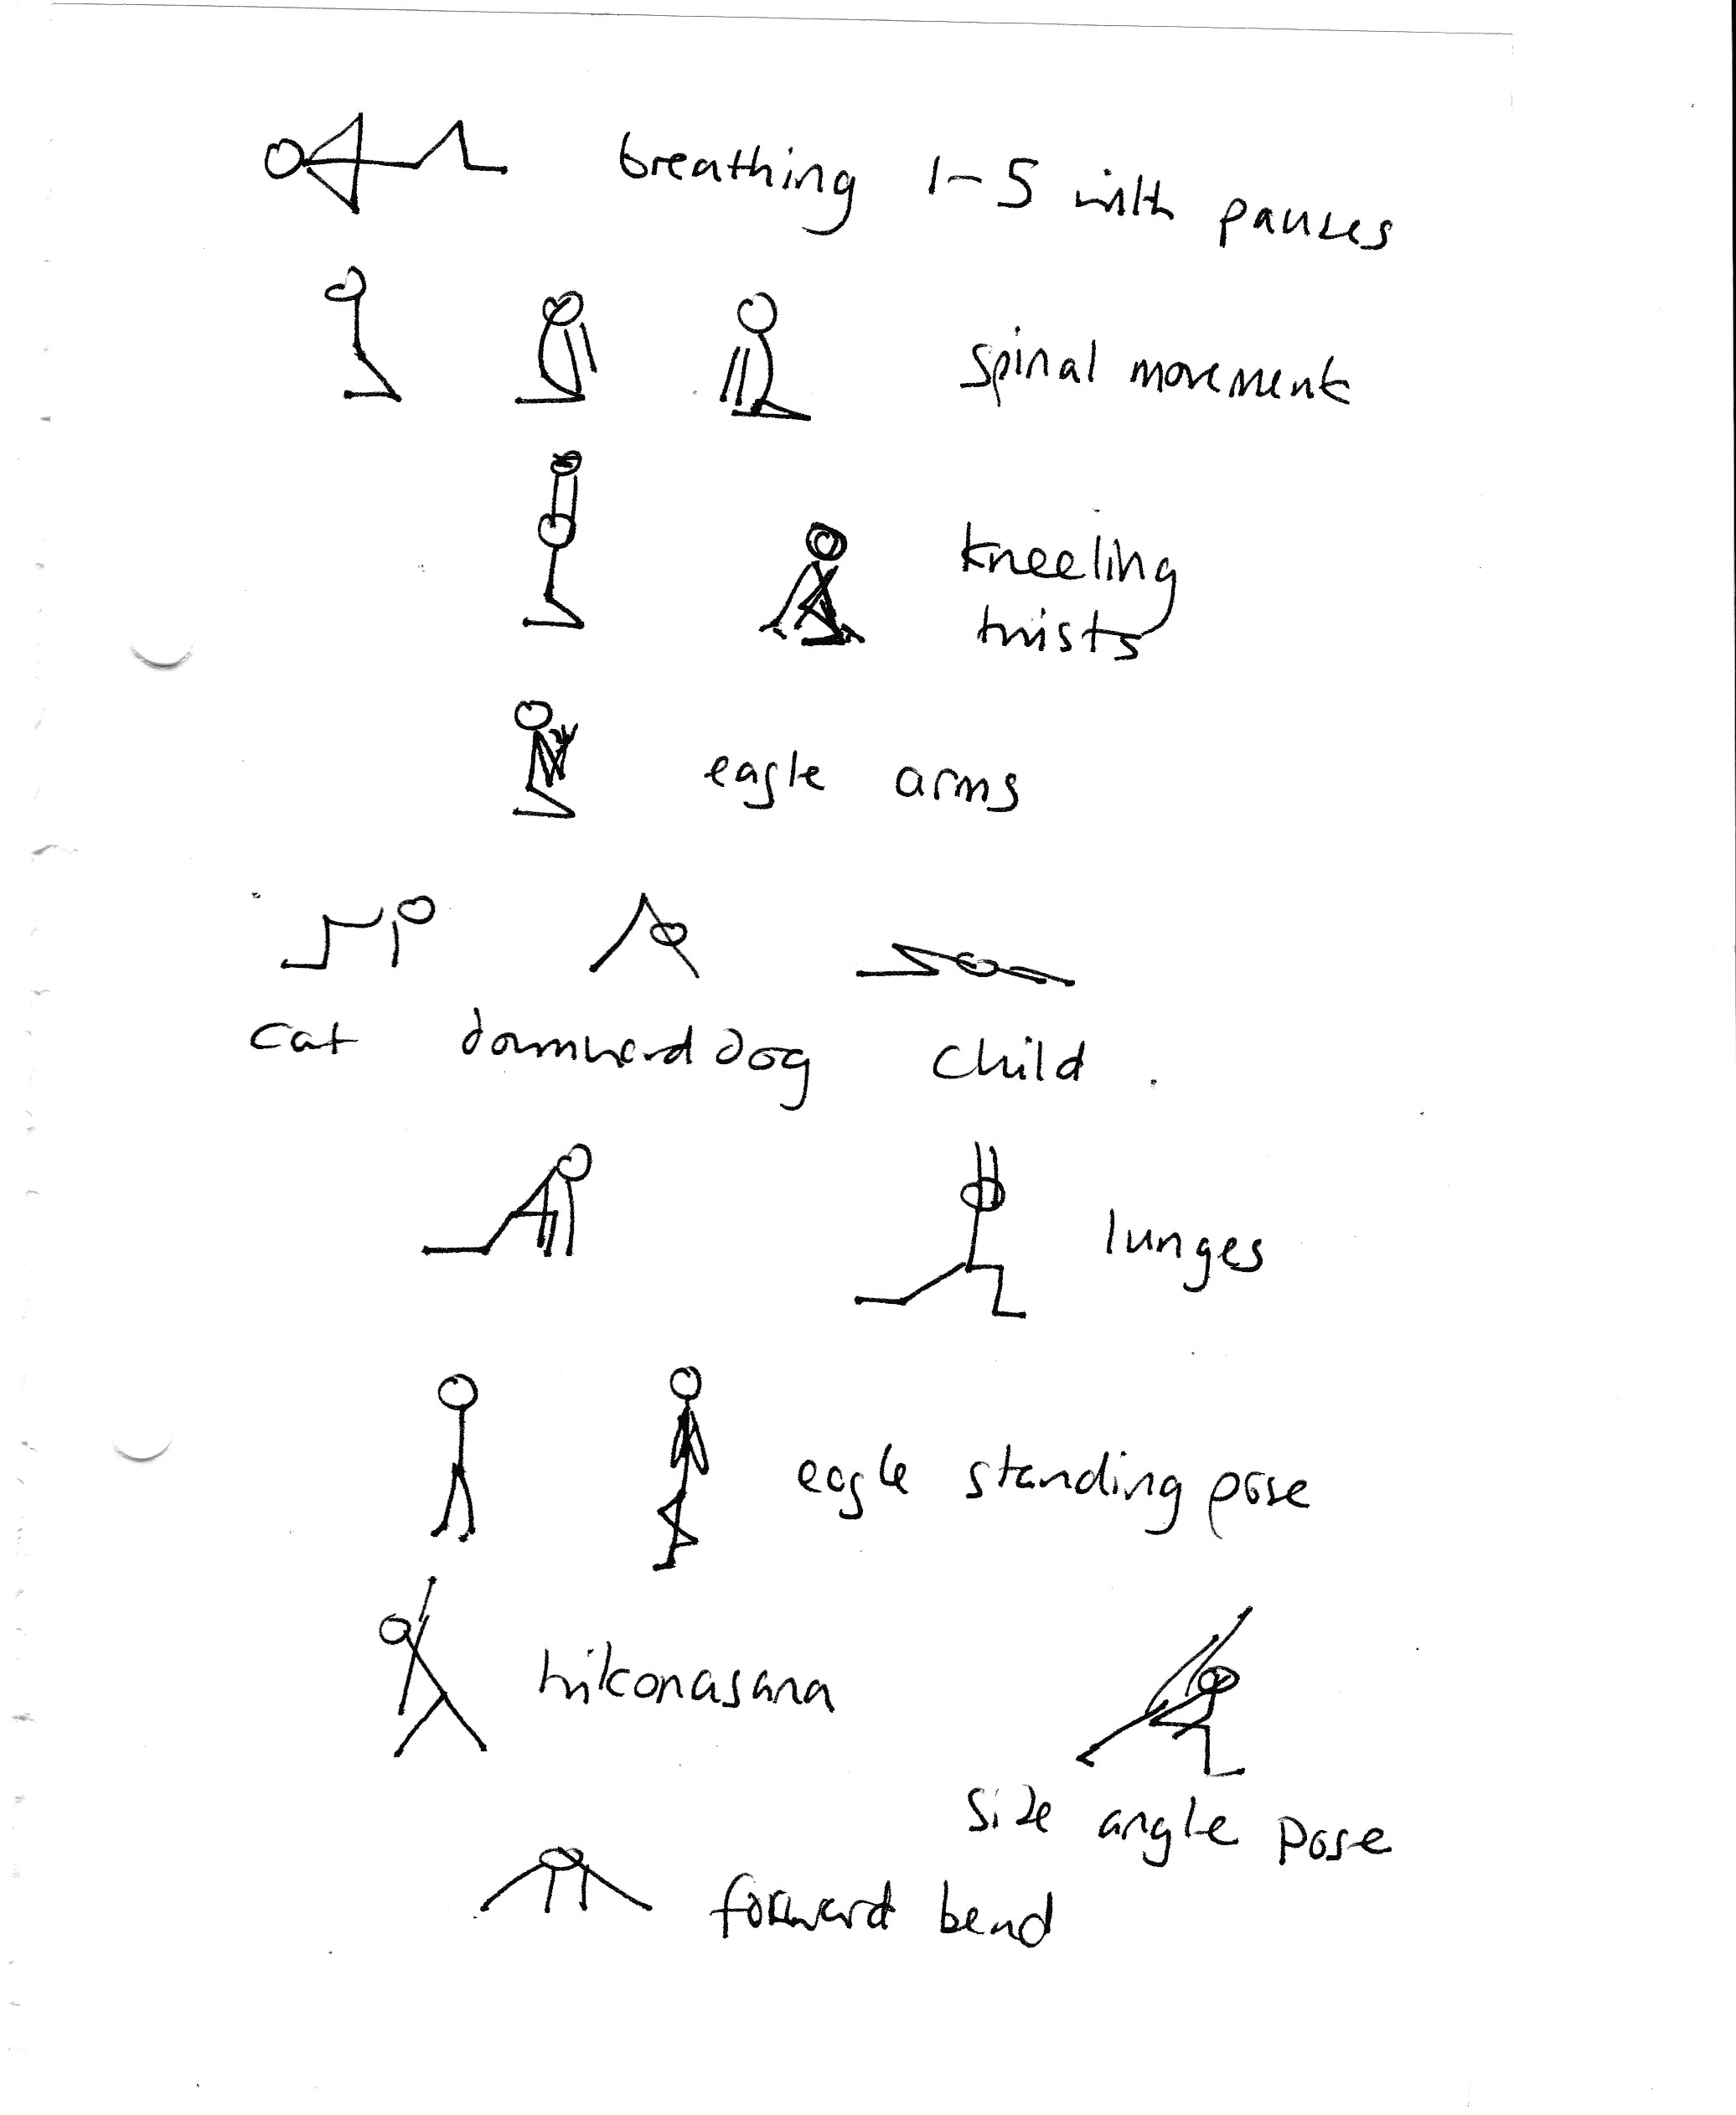 breathing 1-5 with pauses
spinal movement
kneeling
twists
eagle arms
cat downward dog child.
lunges
eagle standing pose
trikonasana
side angle pose
forward bend